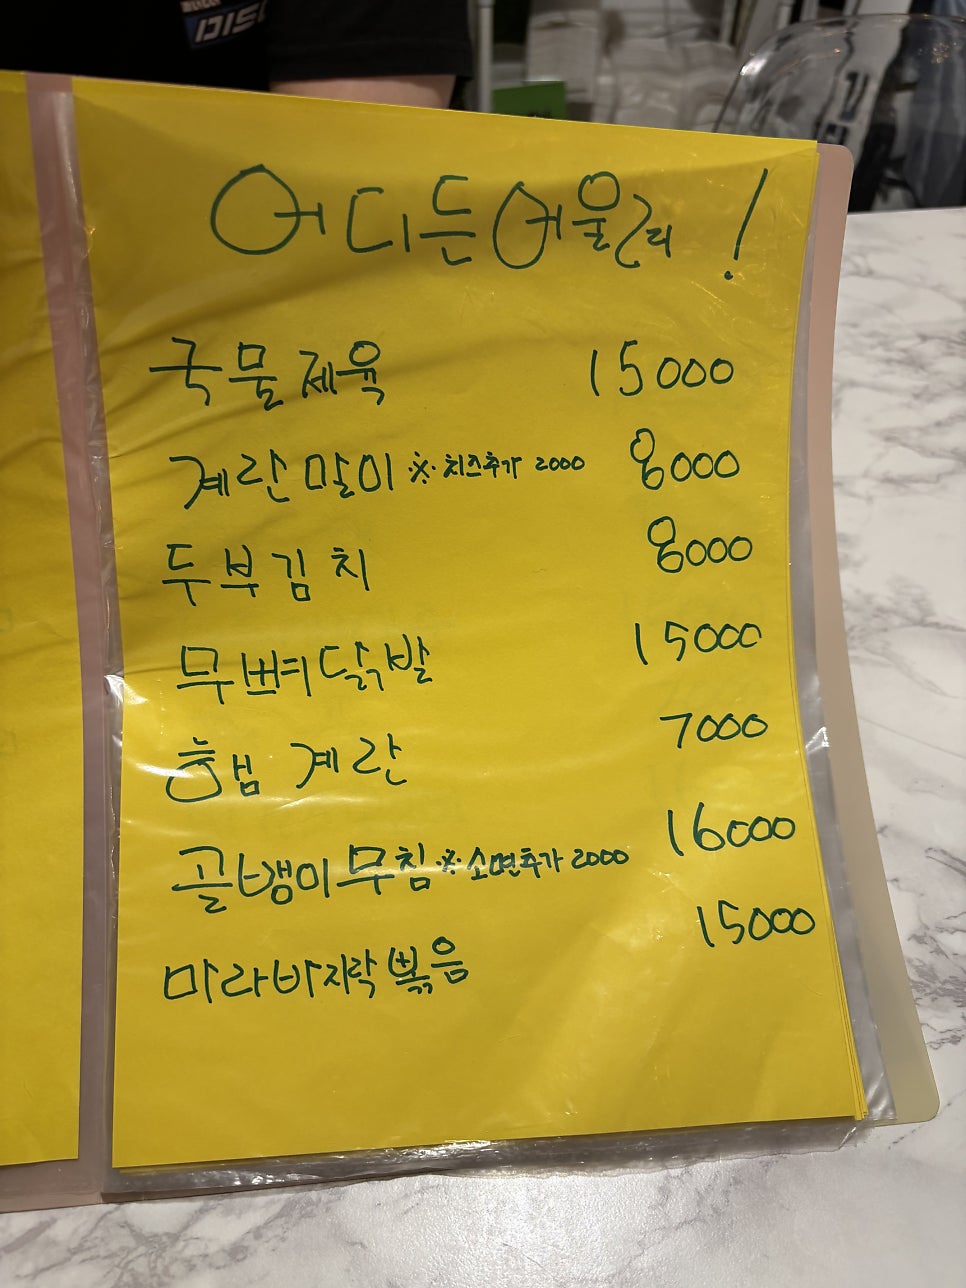 어디든어울려!
국물제육 15000
계란말이 ※치즈추가 2000 8000
두부김치 8000
무뼈닭발 15000
햄 계란 7000
골뱅이무침 ※소면추가 2000 16000
마라바지락볶음 15000